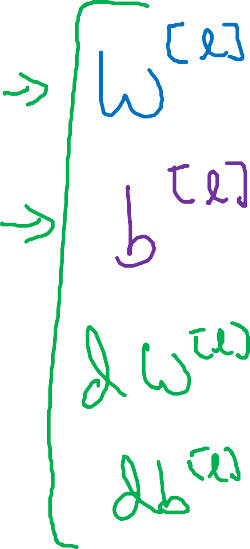 → W^[l]
→ b^[l]
dW^[l]
db^[l]